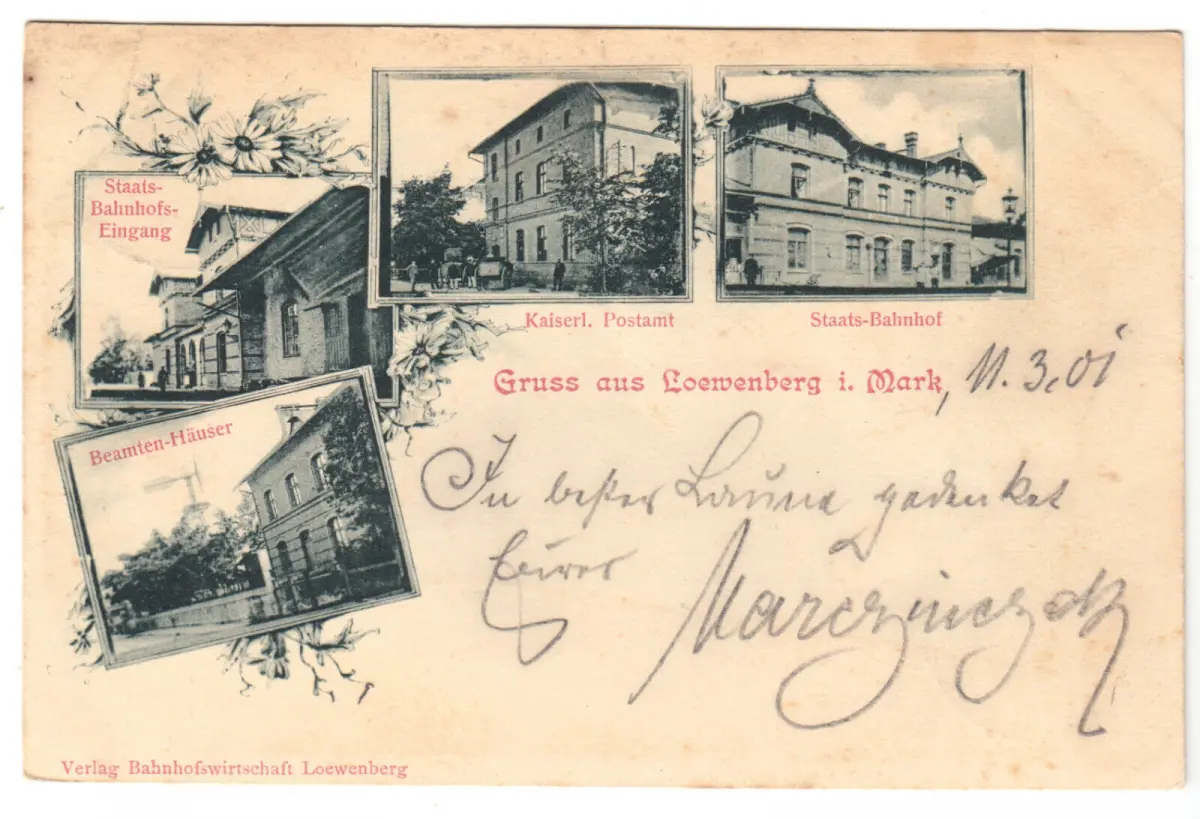 Staats-
Bahnhofs-
Eingang
Kaiserl. Postamt
Staats-Bahnhof
Gruss aus Loewenberg i. Mark, 11.3.01
Beamten-Häuser
In bester Laune gedenket
Eurer
Marczinczek
Verlag Bahnhofswirtschaft Loewenberg